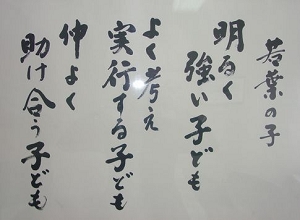 若葉の子
明るく
強い子ども
よく考え
実行する子ども
仲よく
助け合う子ども